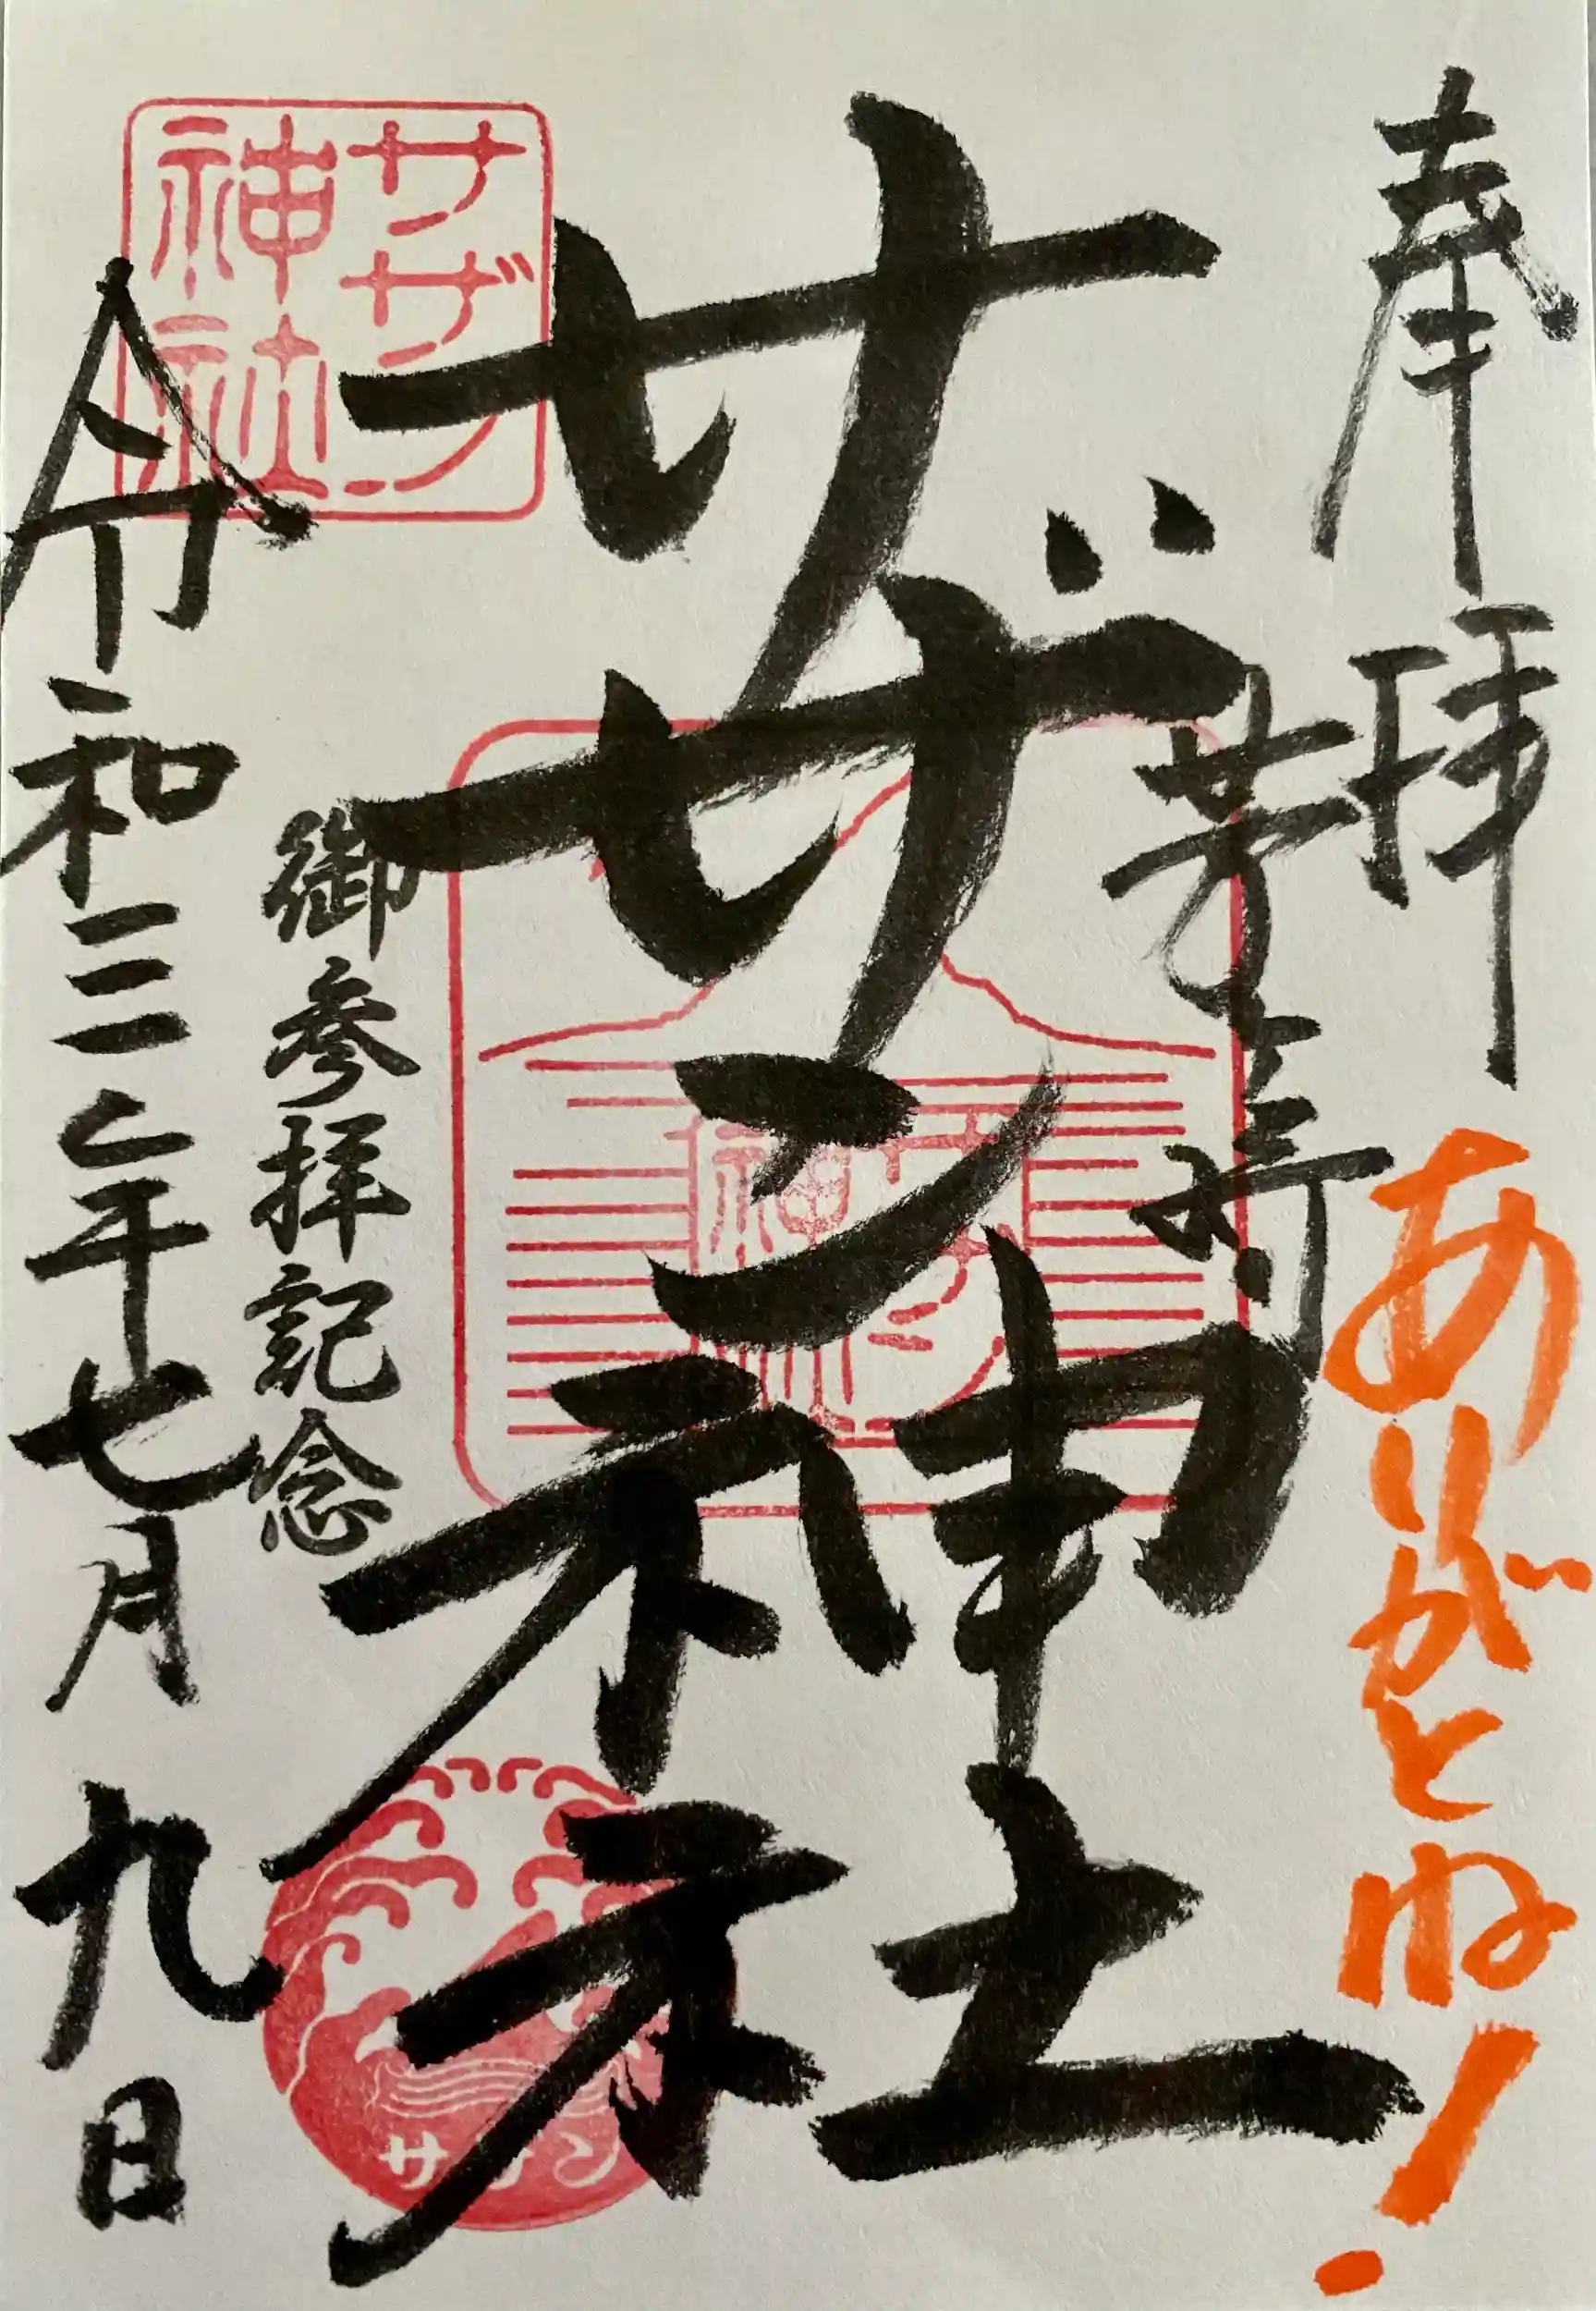 奉拝
ありがとね！
茅ヶ崎
サザン神社
御参拝記念
令和三年七月九日
サザン
神社
サザン
神社
サザン